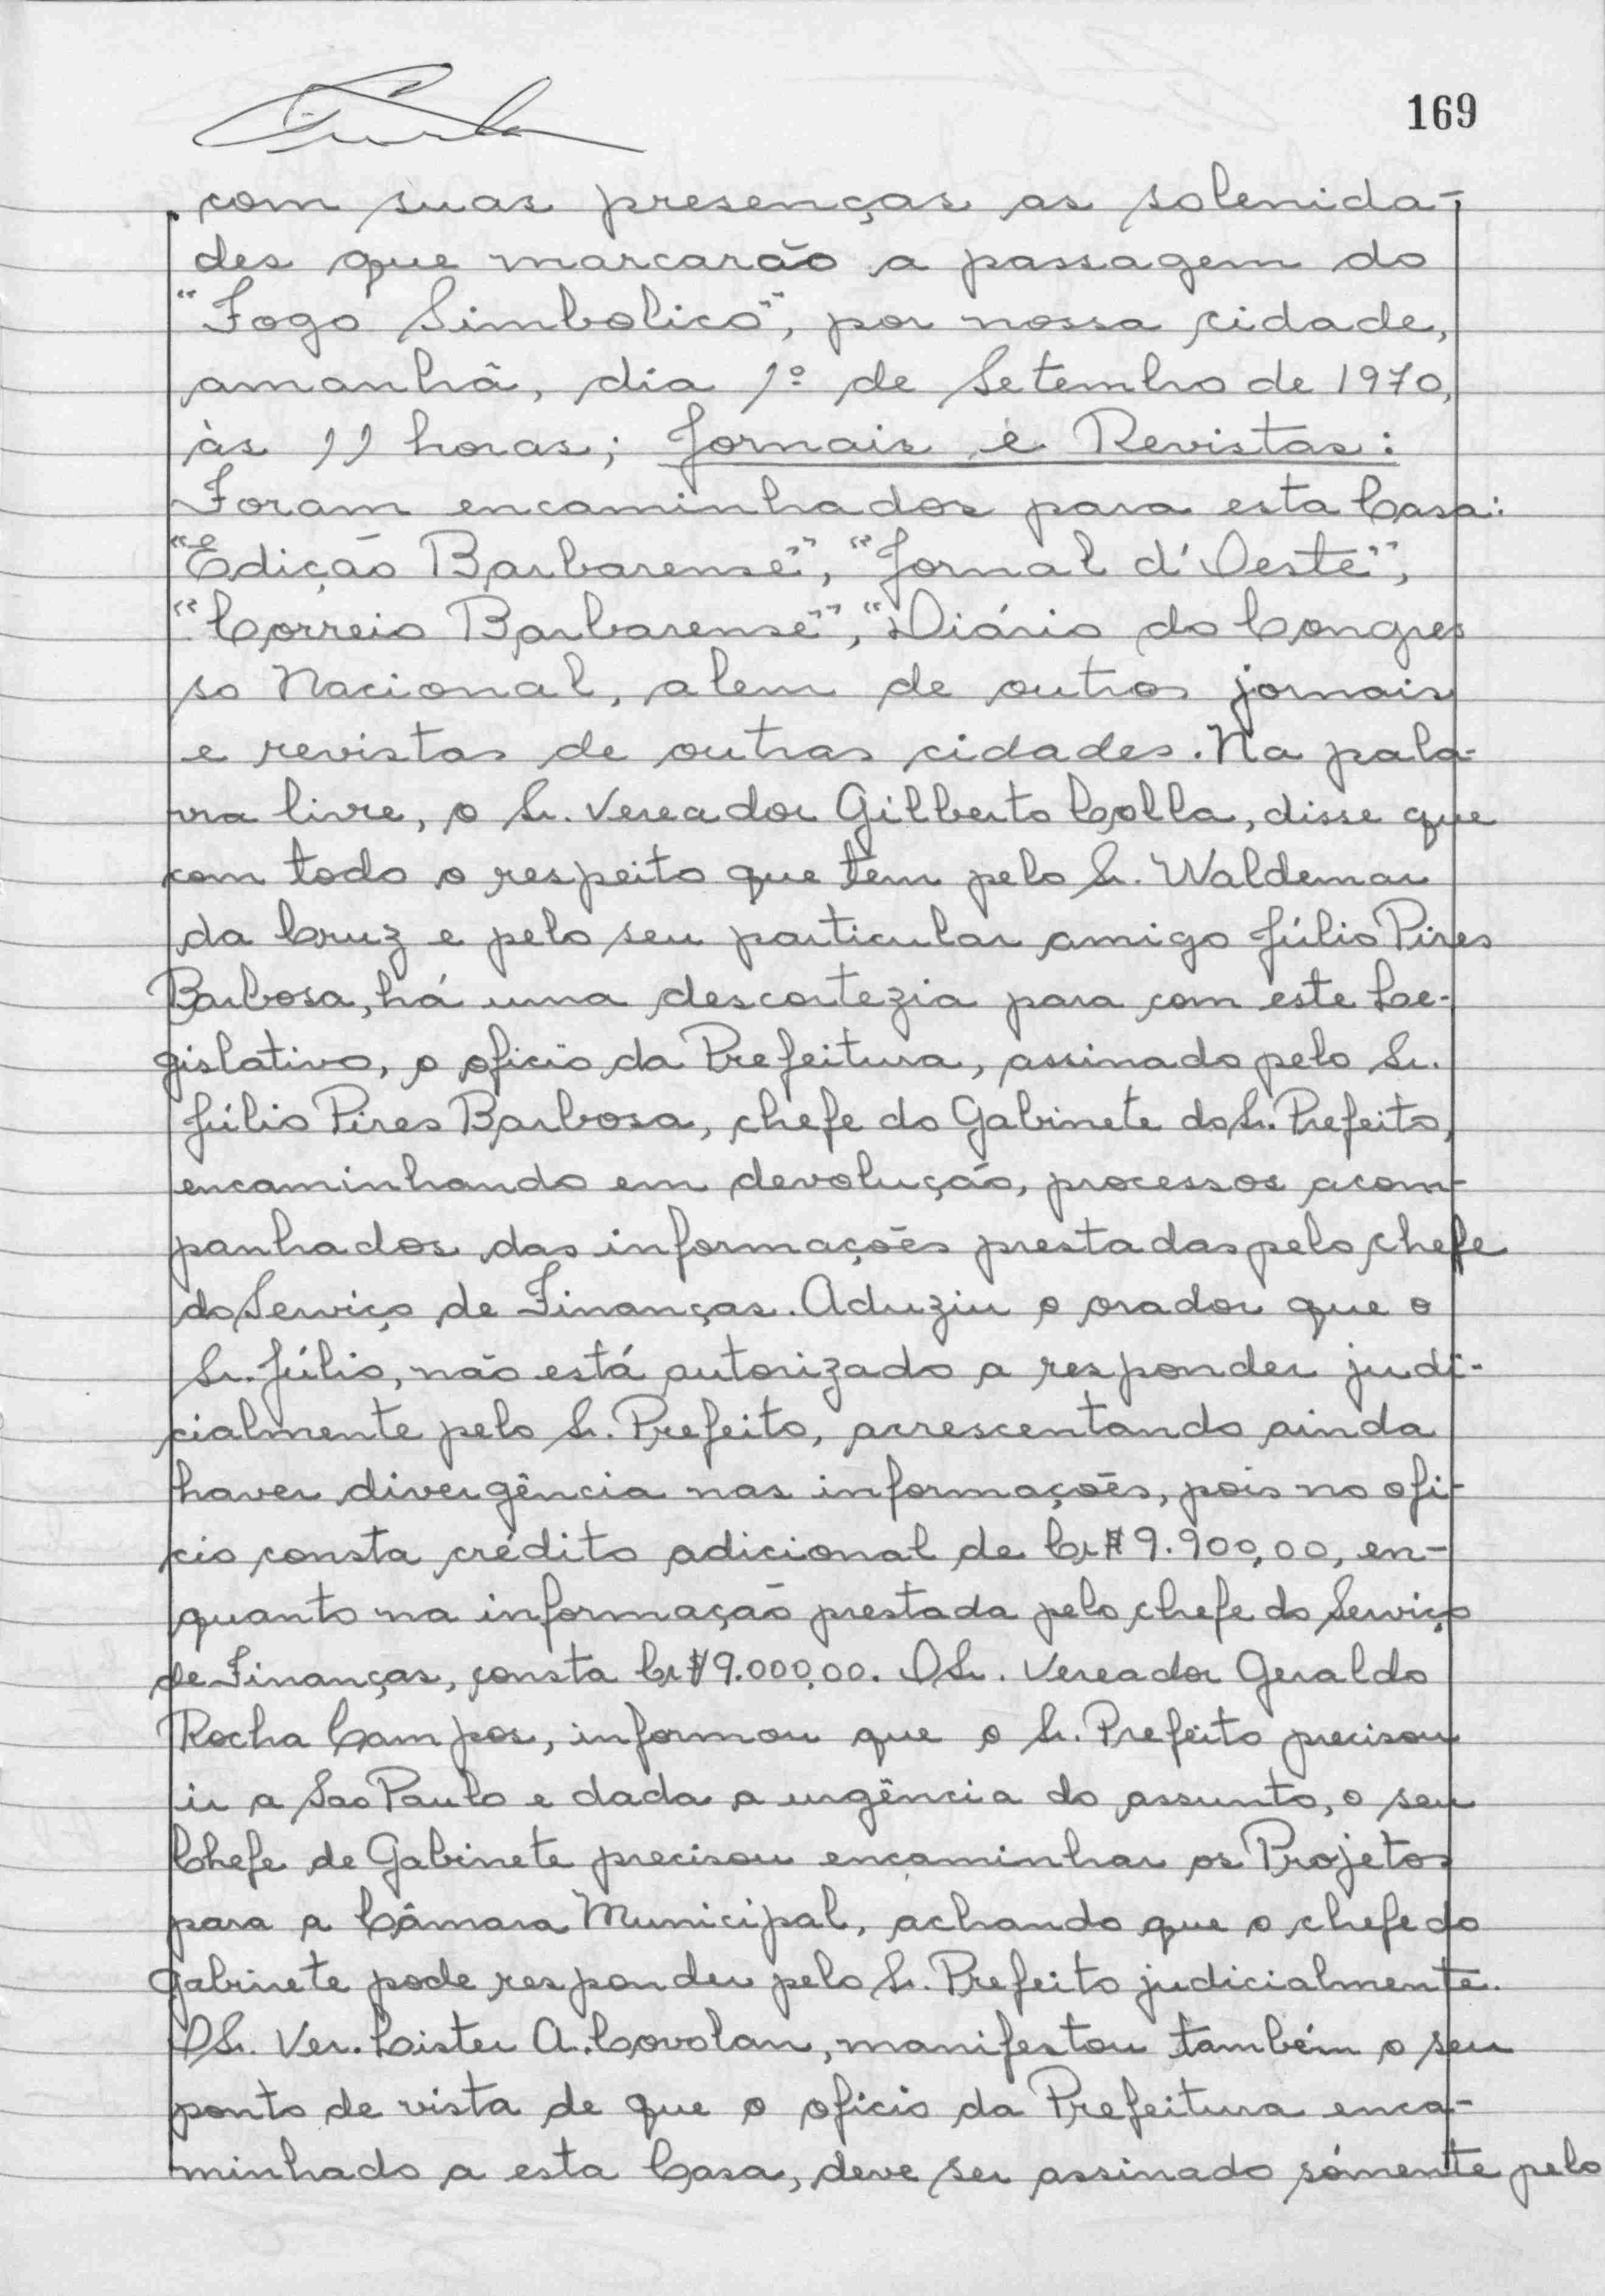 169
com suas presenças as solenida-
des que marcarão a passagem do
"Fogo Simbolico", por nossa cidade,
amanhã, dia 1º de Setembro de 1970,
às 11 horas; Jornais e Revistas:
Foram encaminhados para esta Casa:
"Edição Barbarense", "Jornal d'Oeste",
"Correio Barbarense", "Diário do Congres
so Nacional, alem de outros jornais
e revistas de outras cidades. Na pala-
vra livre, o Sr. Vereador Gilberto Colla, disse que
com todo o respeito que tem pelo Sr. Waldemar
da Cruz e pelo seu particular amigo Júlio Pires
Barbosa, há uma descortezia para com este Le-
gislativo, o oficio da Prefeitura, assinado pelo Sr.
Júlio Pires Barbosa, chefe do Gabinete do Sr. Prefeito,
encaminhando em devolução, processos acom-
panhados das informações prestadas pelo chefe
do Serviço de Finanças. Aduziu o orador que o
Sr. Júlio, não está autorizado a responder judi-
cialmente pelo Sr. Prefeito, acrescentando ainda
haver divergência nas informações, pois no ofi-
cio consta crédito adicional de Cr$ 9.900,00, en-
quanto na informação prestada pelo chefe do Serviço
de Finanças, consta Cr$ 9.000,00. O Sr. Vereador Geraldo
Rocha Campos, informou que o Sr. Prefeito precisou
ir a Sao Paulo e dada a urgência do assunto, o seu
Chefe de Gabinete precisou encaminhar os Projetos
para a Câmara Municipal, achando que o chefe do
Gabinete pode responder pelo Sr. Prefeito judicialmente.
O Sr. Ver. Lister A. Covolan, manifestou também o seu
ponto de vista de que o oficio da Prefeitura enca-
minhado a esta Casa, deve ser assinado sómente pelo